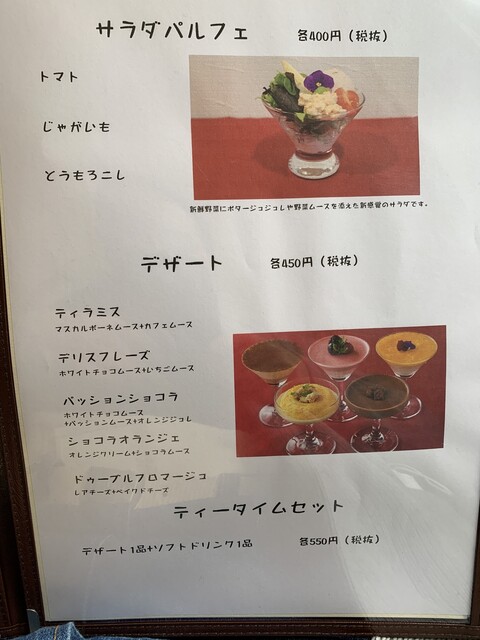 サラダパルフェ 各400円（税抜）
トマト
じゃがいも
とうもろこし
新鮮野菜にポタージュジュレや野菜ムースを添えた新感覚のサラダです。
デザート 各450円（税抜）
ティラミス
マスカルポーネムース+カフェムース
デリスフレーズ
ホワイトチョコムース+いちごムース
パッションショコラ
ホワイトチョコムース
+パッションムース+オレンジジュレ
ショコラオランジェ
オレンジクリーム+ショコラムース
ドゥーブルフロマージュ
レアチーズ+ベイクドチーズ
ティータイムセット
デザート1品+ソフトドリンク1品 各550円（税抜）